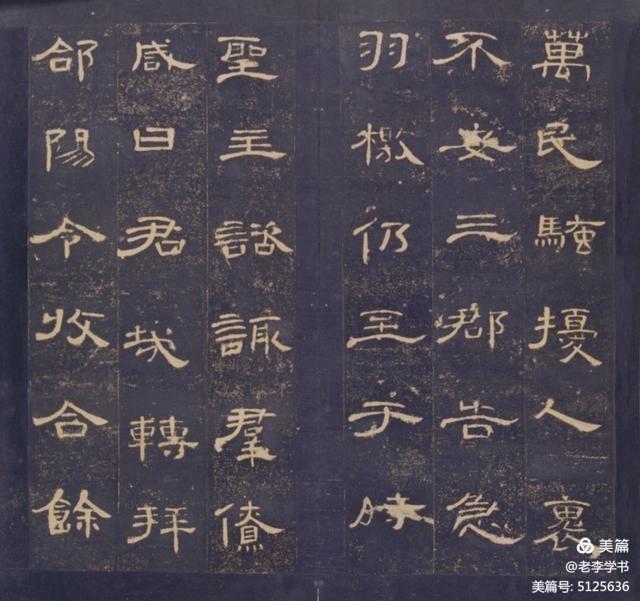 萬民騷擾人裹
不安三郡告急
羽檄仍至于時
聖主諮諏羣僚
咸曰君哉轉拜
郃陽令收合餘
美篇
@老李学书
美篇号: 5125636